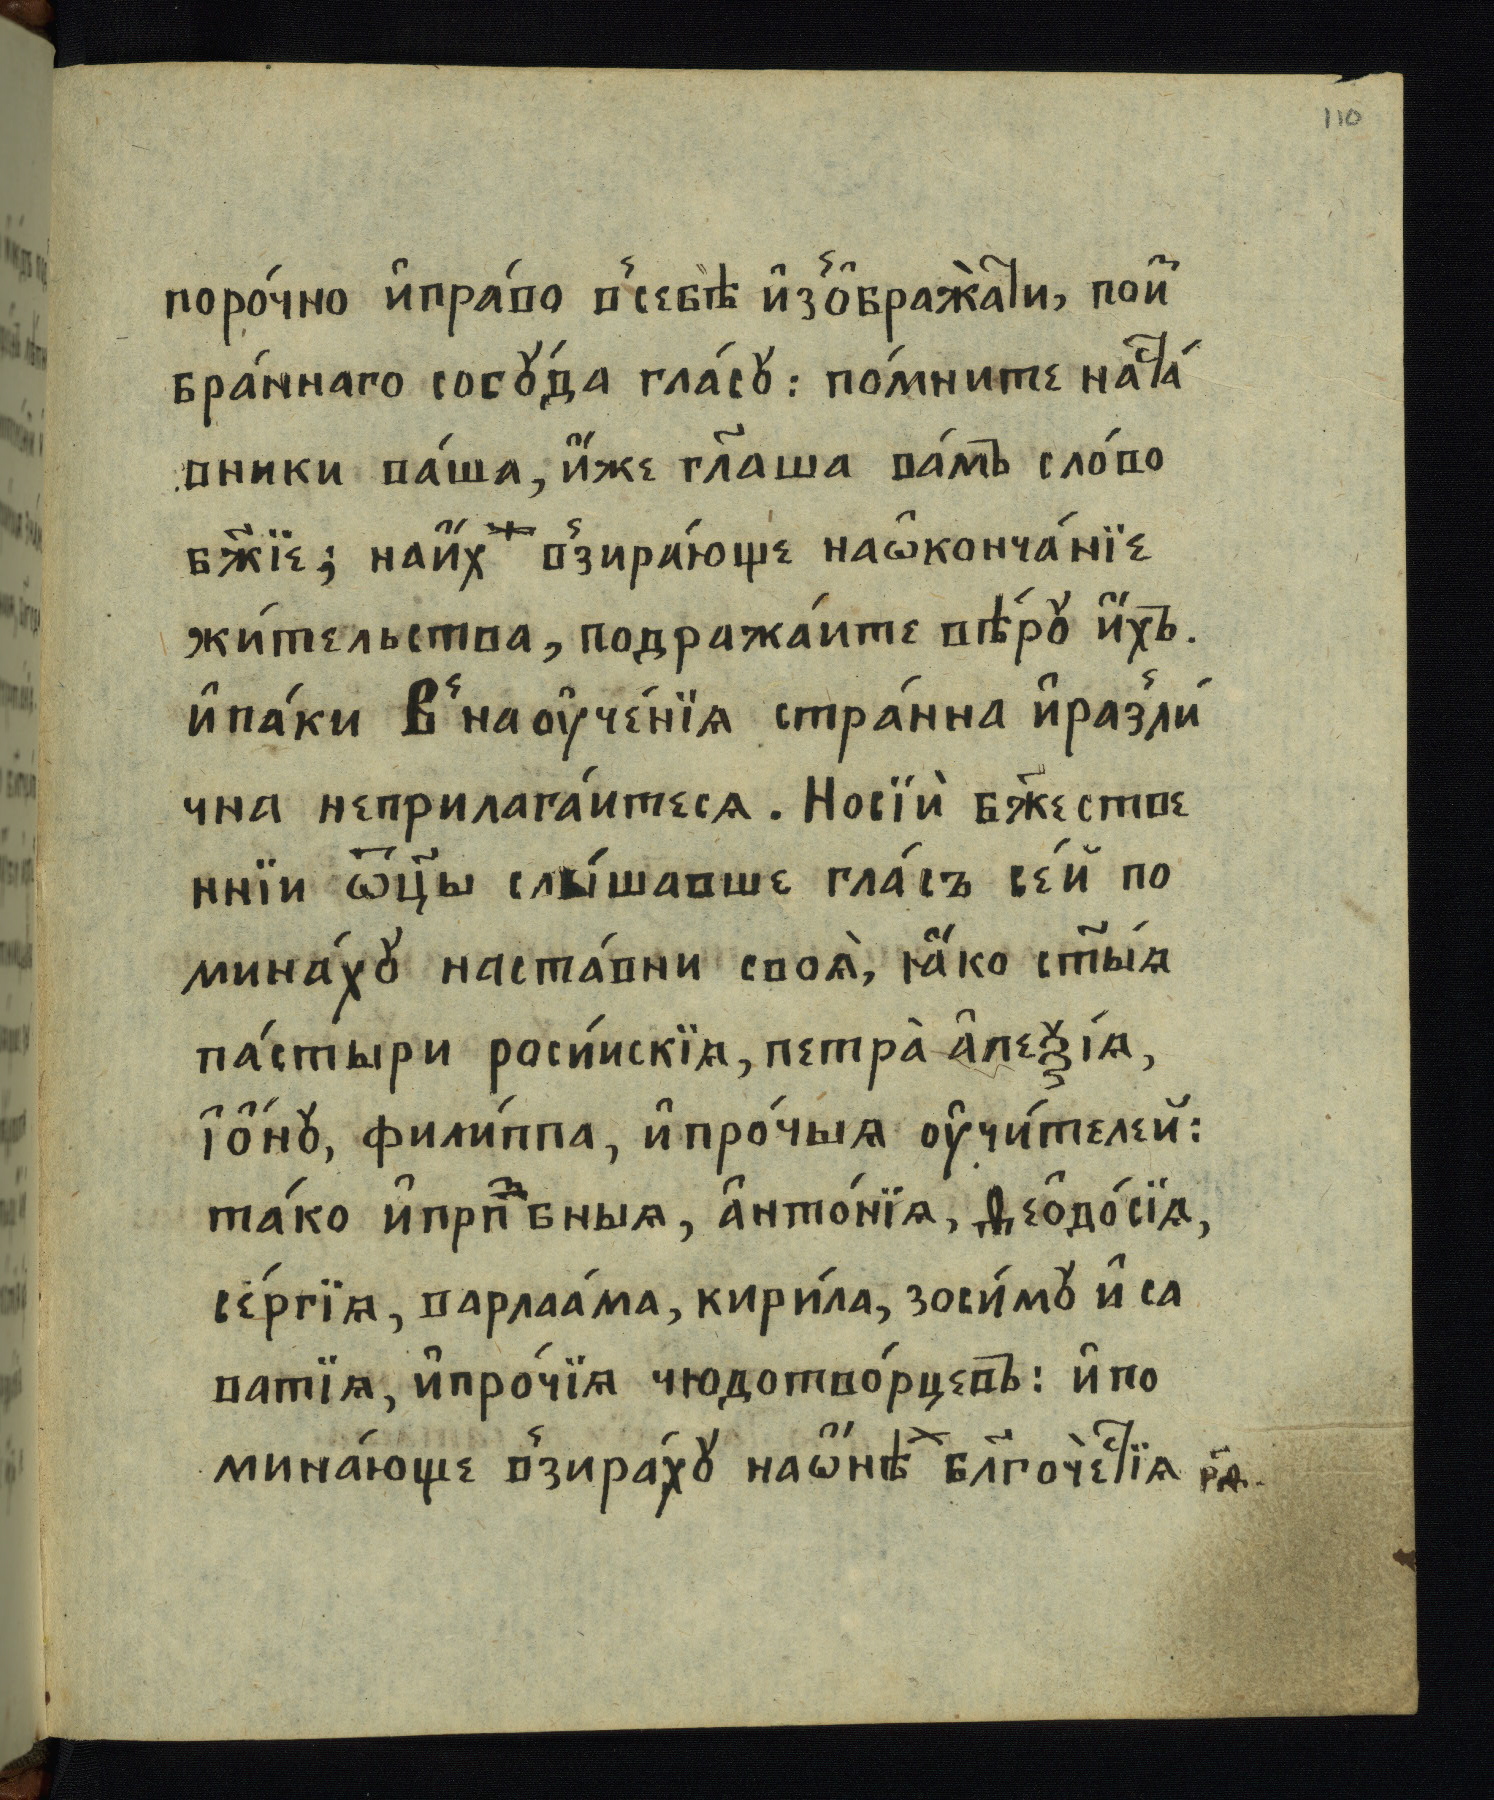 110
поро́чно и҆пра́во в̾себѣ̀ и҆зо̾бража̀ти, пои҆
бра́ннаго сосꙋ́да гла́сꙋ: по́мните наста́
вники ва́ша, и҆́же гл҃аша ва́мъ сло́во
бж҃їе; наи҆́хже в̾зира́юще наѡ҆конча́нїе
жи́тельства, подража́ите вѣ́рꙋ и҆́хъ.
и҆па́ки в̾наоу҆че́нїѧ стра́нна и҆раз̾ли́
чна неприлага́итесѧ. Носїѝ бж҃естве
ннїи ѻ҆ц҃ы слы́шавше гла́съ се́й по
мина́хꙋ наста́вни своѧ̀, ꙗ҆́ко ст҃ы́ѧ
па́стыри роси́искїѧ, петра̀ а҆леѯі́ѧ,
і҆ѻ҆́нꙋ, фили́ппа, и҆про́чыѧ оу҆чи́телей:
та́ко и҆прпⷣбныѧ, а҆нто́нїѧ, ѳео҆до́сїѧ,
се́ргїѧ, варлаа́ма, кири́ла, зоси́мꙋ и҆ са
ватїѧ, и҆про́чїѧ чюдотво́рцевъ: и҆ по
мина́юще в̾зира́хꙋ наѡ҆́нѣхъ бл҃гочѐстїѧ